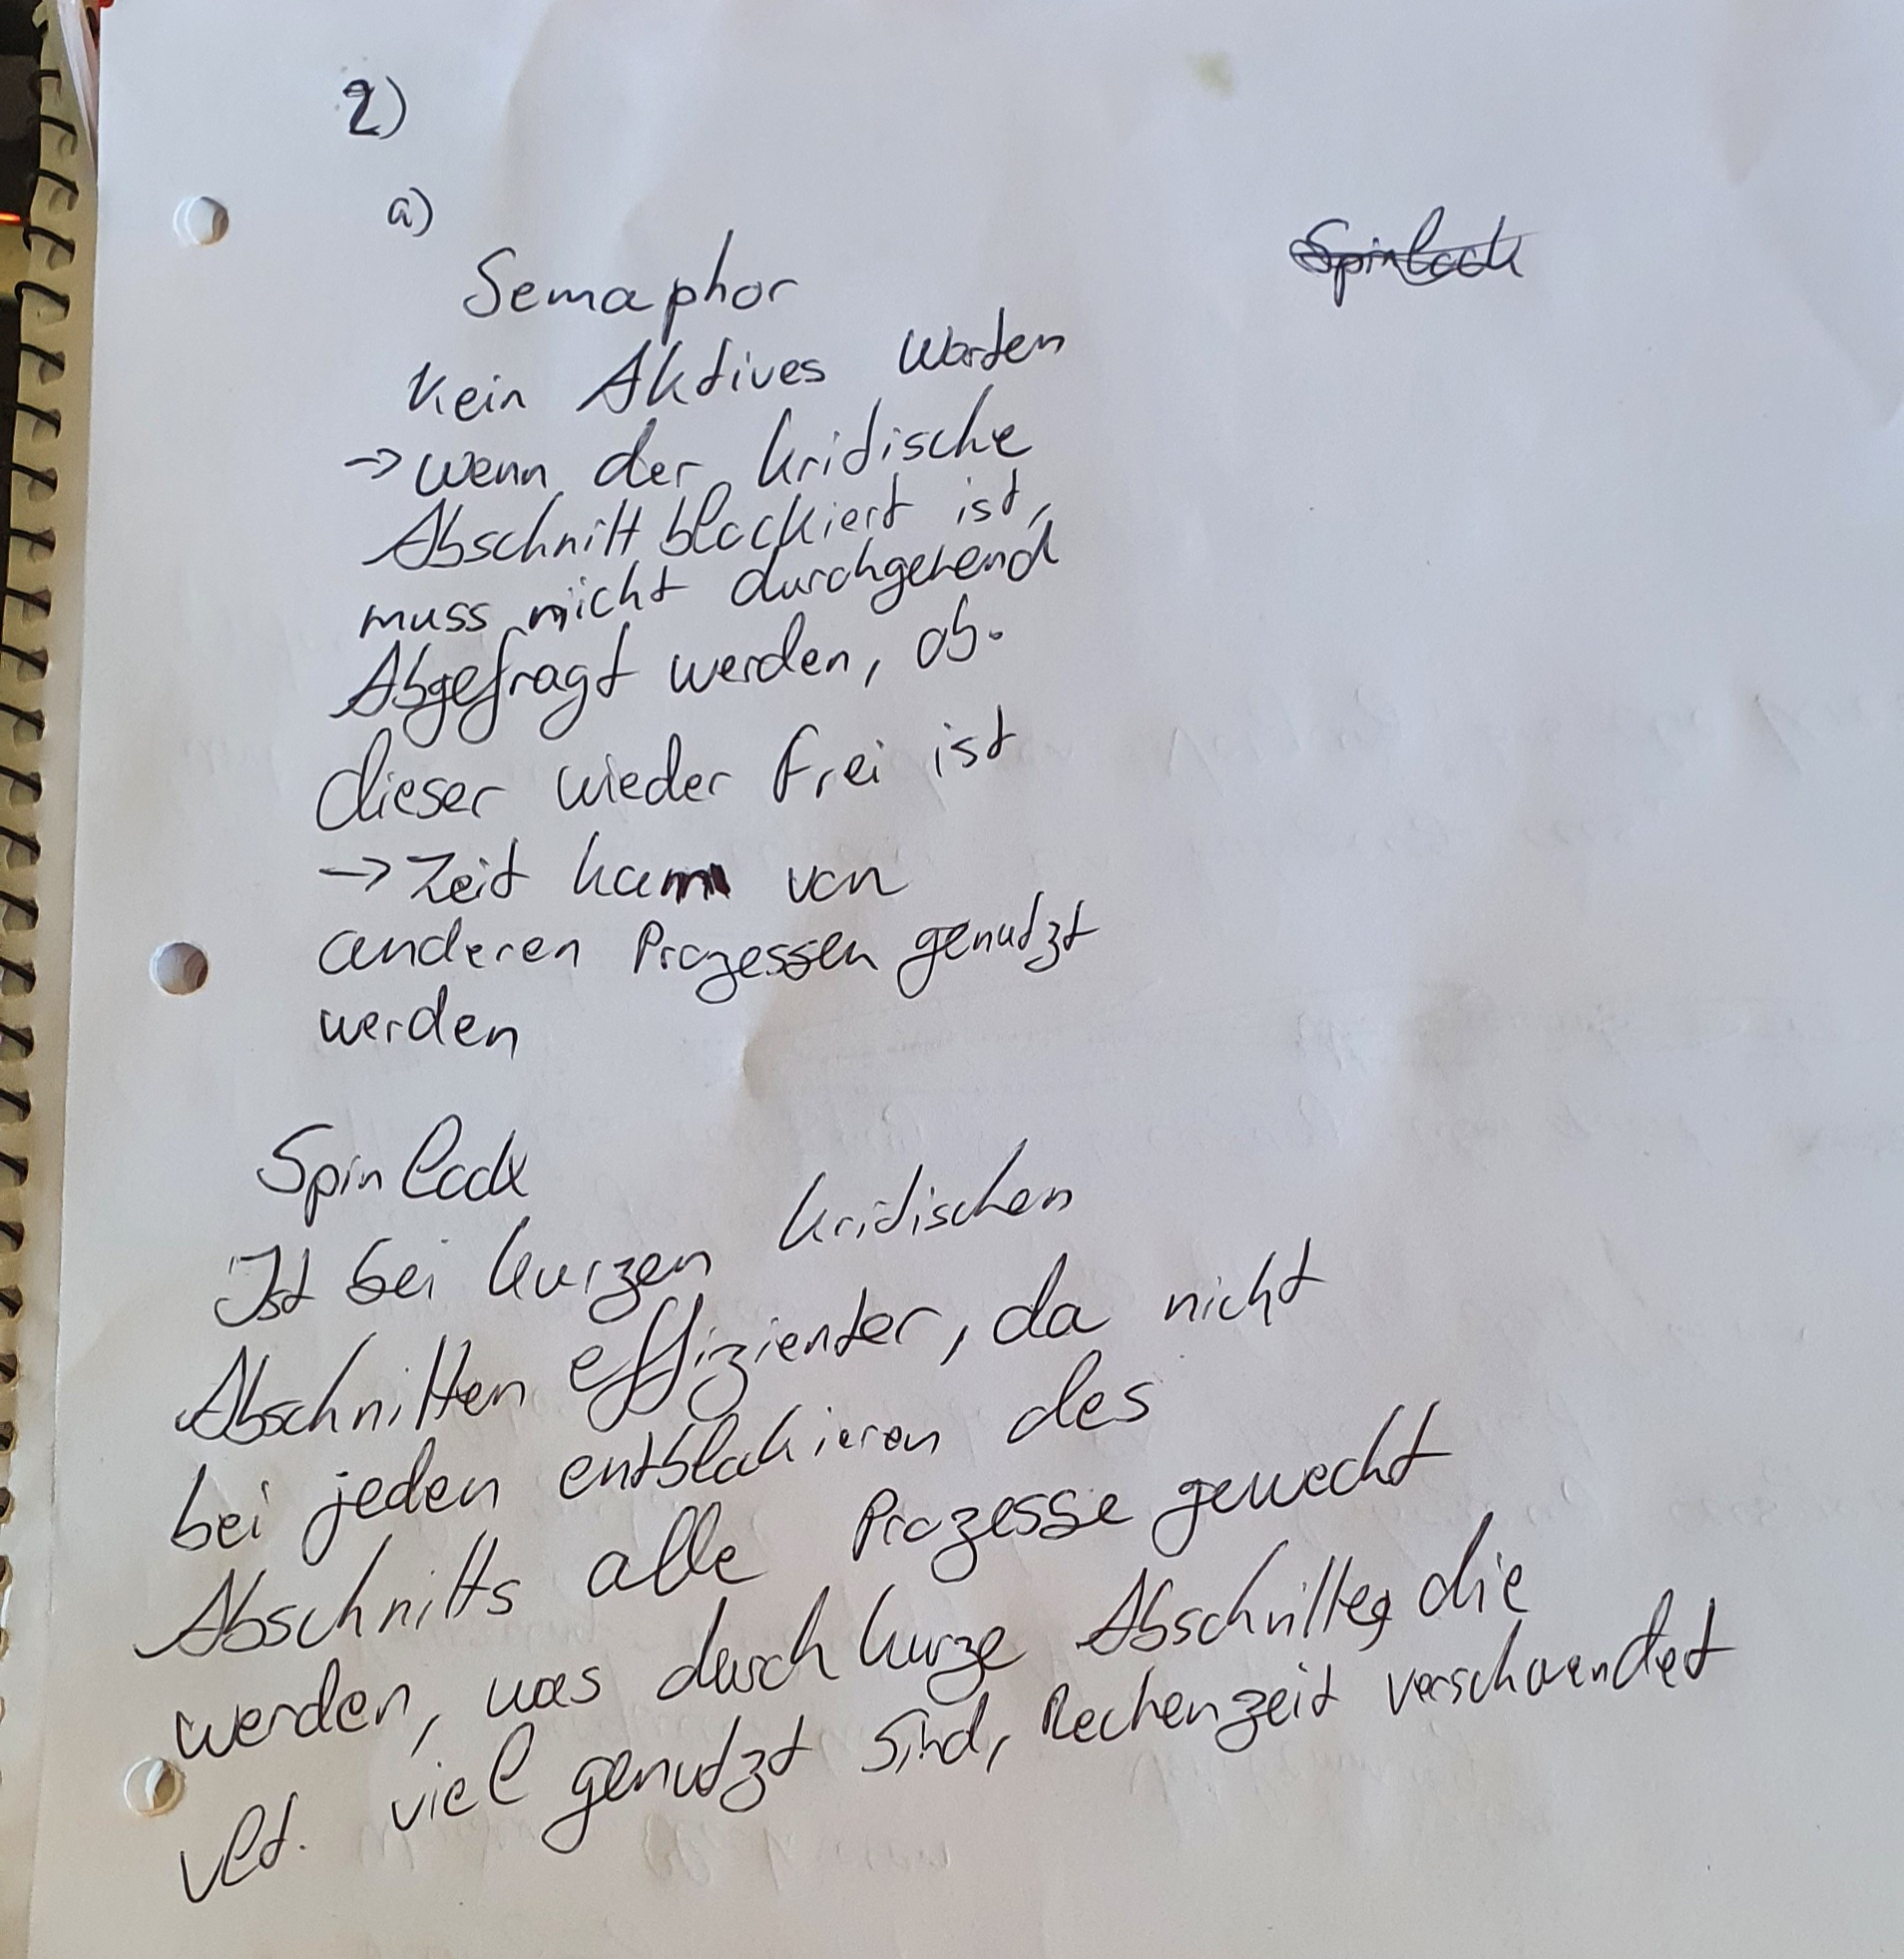 2)
a)
Spinlock
Semaphor
Kein Aktives Warten
→ Wenn der kritische
Abschnitt blockiert ist,
muss nicht durchgehend
Abgefragt werden, ob
dieser wieder frei ist
→ Zeit kann von
anderen Prozessen genutzt
werden
Spinlock
Ist bei kurzen kritischen
Abschnitten effizienter, da nicht
bei jeden entblockieren des
Abschnitts alle Prozesse geweckt
werden, was durch kurze Abschnitte, die
vlt. viel genutzt sind, Rechenzeit verschwendet